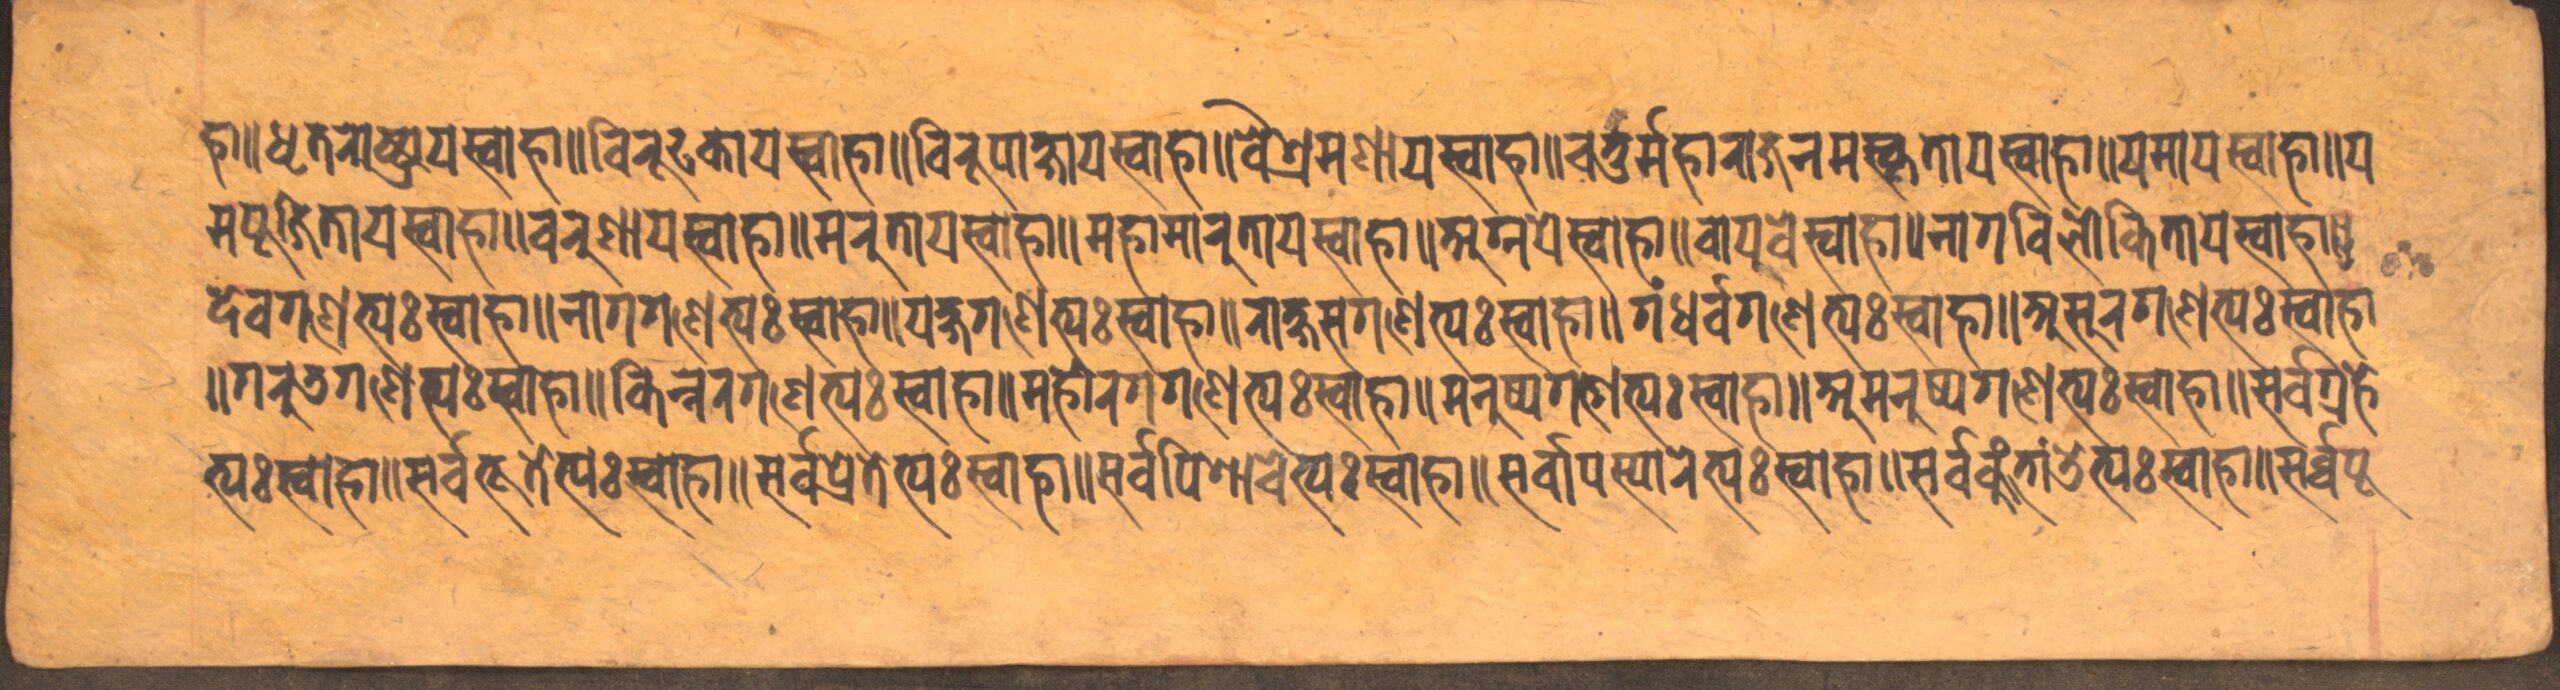 हा॥धृतराष्ट्रायस्वाहा॥विरूढकायस्वाहा॥विरूपाक्षायस्वाहा॥वैश्रमणायस्वाहा॥चतुर्महाराजनमस्कृतायस्वाहा॥यमायस्वाहा॥य
मपूजितायस्वाहा॥वरुणायस्वाहा॥मरुतायस्वाहा॥महामारुतायस्वाहा॥अग्नयेस्वाहा॥वायवेस्वाहा॥नागविलोकितायस्वाहा॥
देवगणेभ्यःस्वाहा॥नागगणेभ्यःस्वाहा॥यक्षगणेभ्यःस्वाहा॥राक्षसगणेभ्यःस्वाहा॥गंधर्वगणेभ्यःस्वाहा॥असुरगणेभ्यःस्वाहा
॥गरुडगणेभ्यःस्वाहा॥किन्नरगणेभ्यःस्वाहा॥महोरगगणेभ्यःस्वाहा॥मनुष्यगणेभ्यःस्वाहा॥अमनुष्यगणेभ्यःस्वाहा॥सर्वग्रहे
भ्यःस्वाहा॥सर्वभूतेभ्यःस्वाहा॥सर्वप्रेतेभ्यःस्वाहा॥सर्वपिशाचेभ्यःस्वाहा॥सर्वापस्मारेभ्यःस्वाहा॥सर्वकुंभांडेभ्यःस्वाहा॥सर्व्वपू